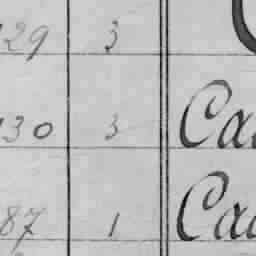 29 3
130 3 Ca
87 1 Ca